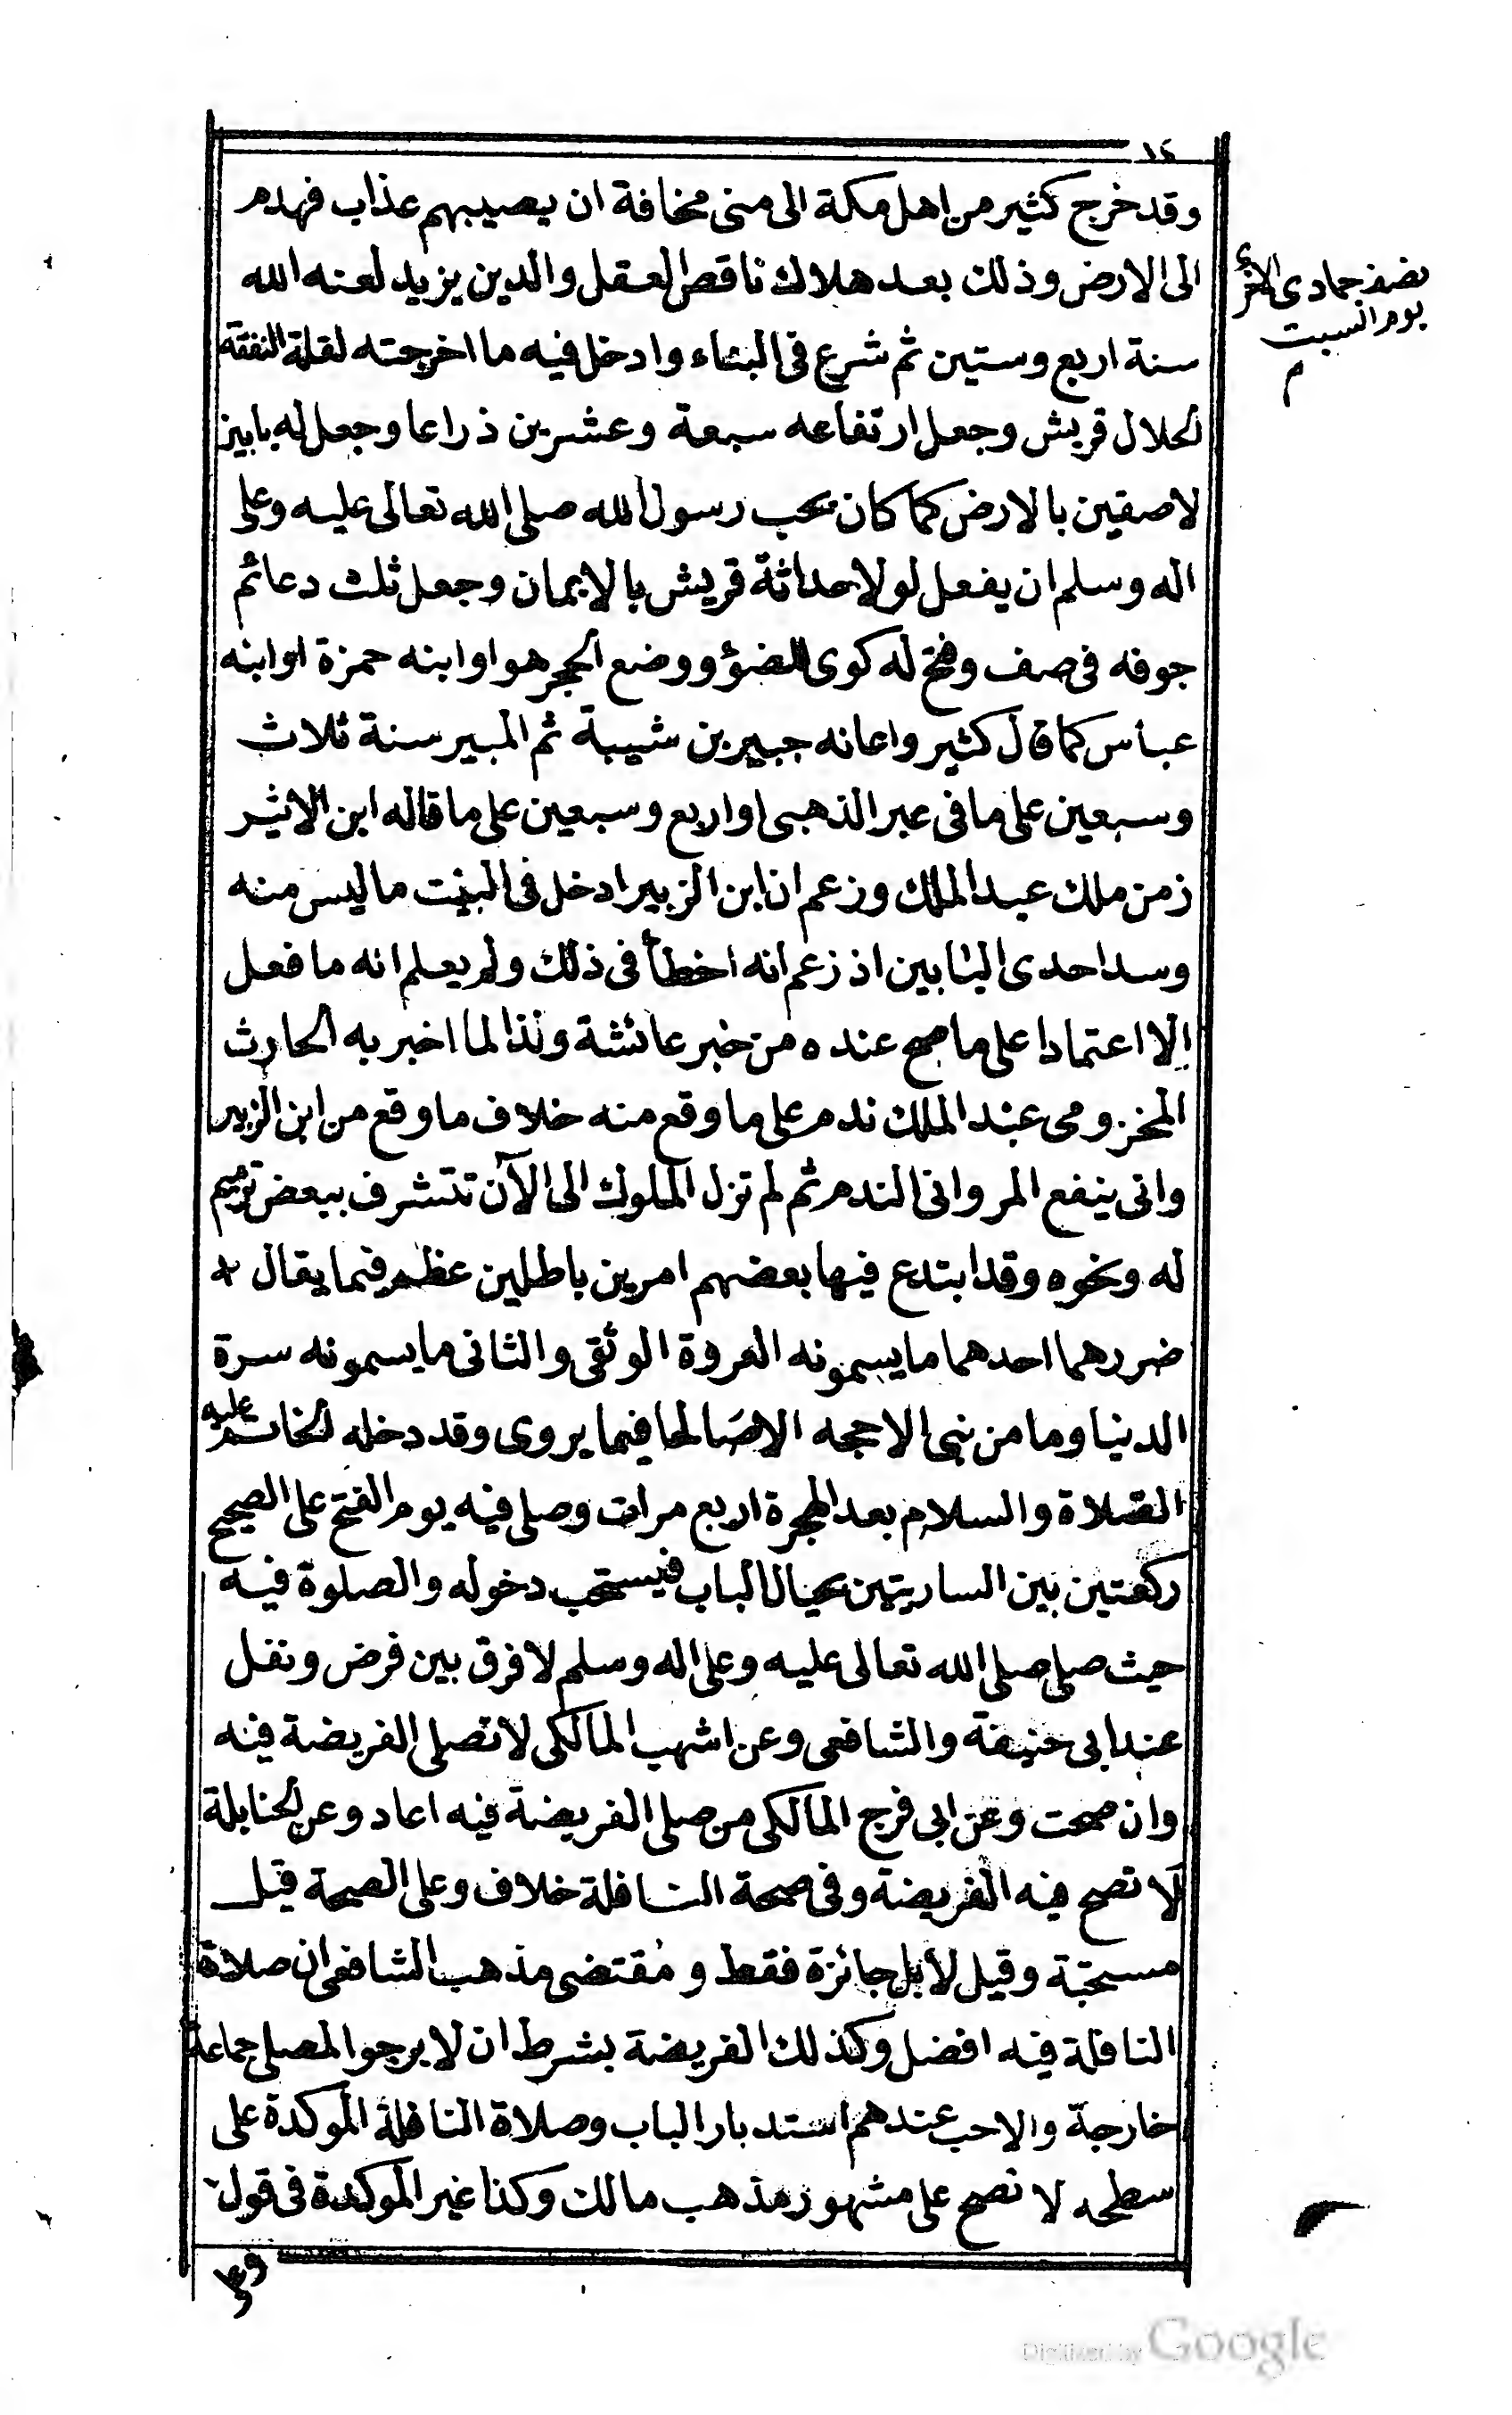 ١٤
وقد خرج كثير من اهل مكة الى منى مخافة ان يصيبهم عذاب فهدم
الى الارض وذلك بعد هلاك ناقص العقل والدين يزيد لعنه الله
نصف جمادى الاخرى
يوم السبت
م
سنة اربع وستين ثم شرع فى البناء وادخل فيه ما اخرجته لقلة النفقة
الحلال قريش وجعل ارتفاعه سبعة وعشرين ذراعا وجعل له بابين
لاصقين بالارض كما كان يحب رسول الله صلى الله تعالى عليه وعلى
اله وسلم ان يفعل لولا حداثة قريش بالايمان وجعل ثلث دعائم
جوفه فى صف وفتح له كوى للضوؤ ووضع الحجر هو او ابنه حمزة او ابنه
عباس كما قال كثير واعانه جبير بن شيبة ثم المبير سنة ثلاث
وسبعين على ما فى عبر الذهبى او اربع وسبعين على ما قاله ابن الاثير
زمن ملك عبد الملك وزعم ان ابن الزبير ادخل فى البيت ما ليس منه
وسد احدى البابين اذ زعم انه اخطأ فى ذلك ولم يعلم انه ما فعل
الا اعتمادا على ما صح عنده من خبر عائشة ولذا لما اخبر به الحارث
المخزومى عبد الملك ندم على ما وقع منه خلاف ما وقع من ابن الزبير
وانى ينفع المروانى الندم ثم لم تزل الملوك الى الآن تتشرف ببعض ترميم
له ونحوه وقد ابتدع فيها بعضهم امرين باطلين عظم فيما يقال
ضررهما احدهما ما يسمونه العروة الوثقى والثانى ما يسمونه سرة
الدنيا وما من نبى الا حجه الا صالحا فيما يروى وقد دخله الخاتم عليه
الصلاة والسلام بعد الهجرة اربع مرات وصلى فيه يوم الفتح على الصحيح
ركعتين بين الساريتين بحيال الباب فيستحب دخوله والصلوة فيه
حيث صلى صلى الله تعالى عليه وعلى اله وسلم لا فرق بين فرض ونفل
عند ابى حنيفة والشافعى وعن اشهب المالكى لا تصلى الفريضة فيه
وان صحت وعن ابى فرج المالكى من صلى الفريضة فيه اعاد وعن الحنابلة
لا تصح فيه الفريضة وفى صحة النافلة خلاف وعلى الصحة قيل
مستحبة وقيل لا بل جائزة فقط ومقتضى مذهب الشافعى ان صلاة
النافلة فيه افضل وكذلك الفريضة بشرط ان لا يرجو المصلى جماعة
خارجة والاحب عندهم استدبار الباب وصلاة النافلة الموكدة على
سطحه لا تصح على مشهور مذهب مالك وكذا غير الموكدة فى قول
Digitized by Google